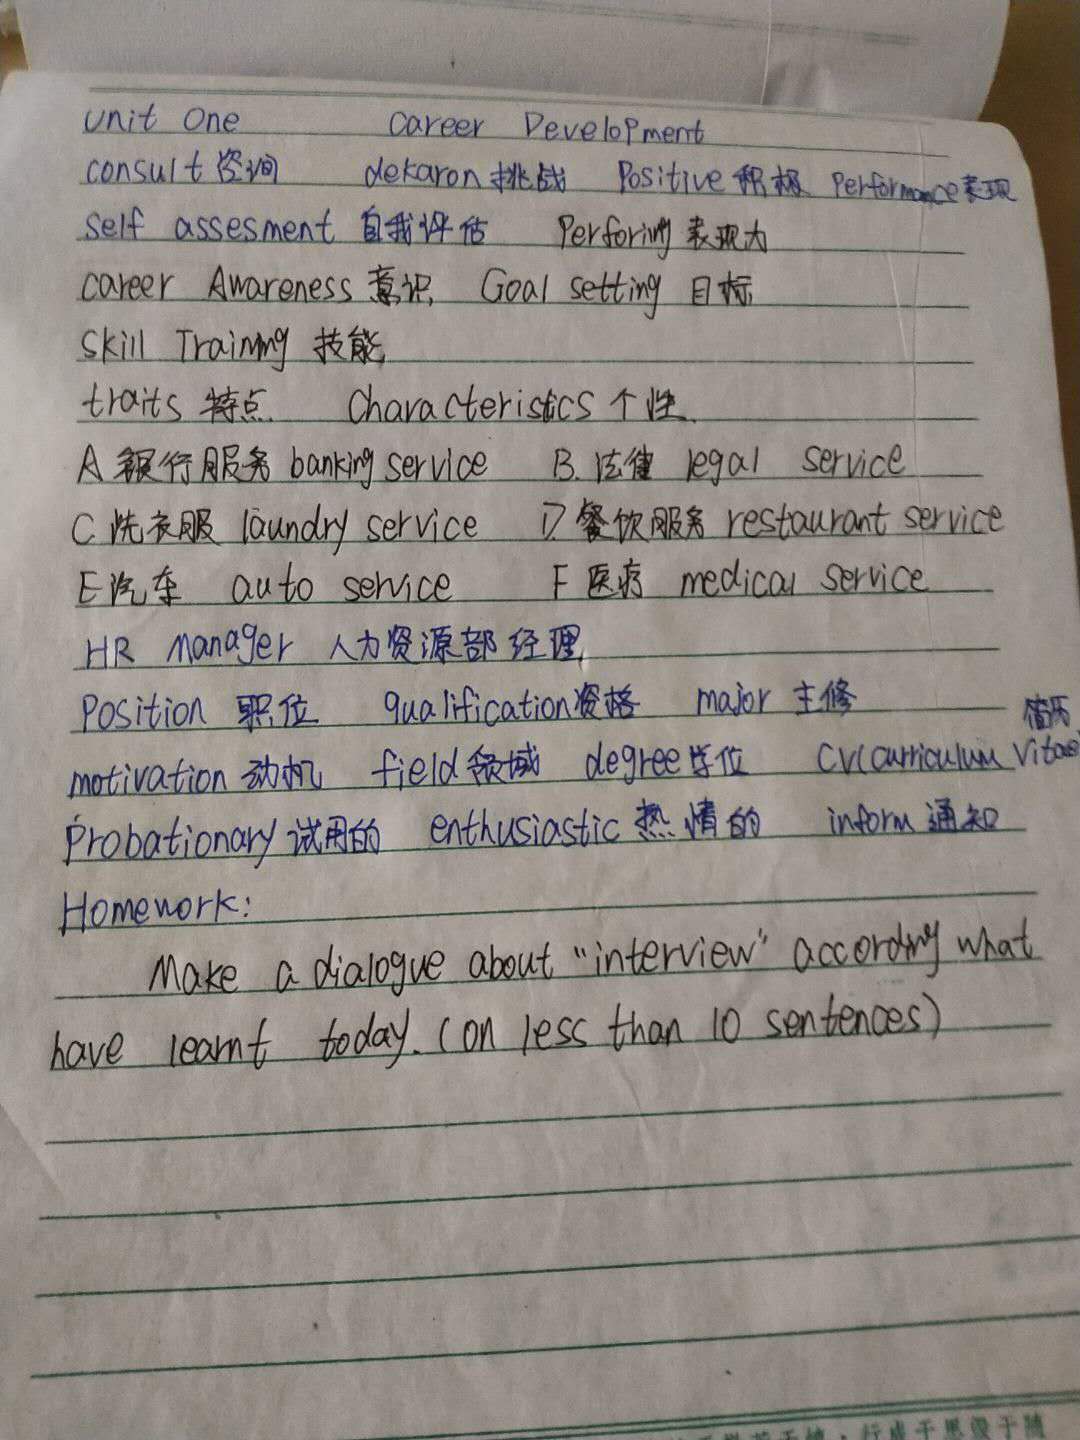 Unit One Career Development
consult 咨询 dekaron 挑战 Positive 积极 Performance 表现
Self assesment 自我评估 Perforing 表现力
career Awareness 意识 Goal setting 目标
Skill Training 技能
traits 特点 Characteristics 个性
A 银行服务 banking service B. 法律 legal service
C 洗衣服 laundry service D 餐饮服务 restaurant service
E 汽车 auto service F 医疗 medical service
HR manager 人力资源部经理
Position 职位 qualification 资格 major 主修
简历
motivation 动机 field 领域 degree 学位 CV(curriculum Vitae)
Probationary 试用的 enthusiastic 热情的 inform 通知
Homework:
Make a dialogue about "interview" according what
have learnt today. (on less than 10 sentences)
行成于思毁于随